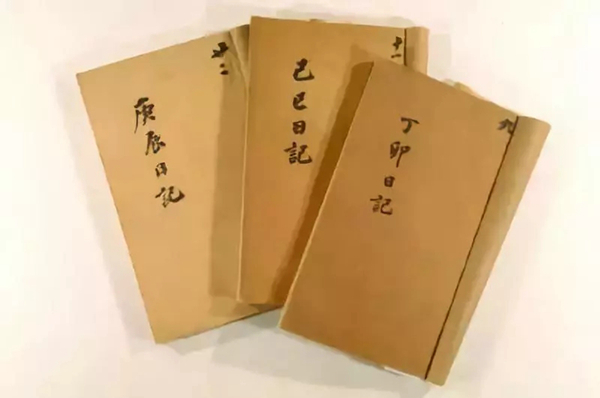 廿二
庚辰日記
十一
己巳日記
九
丁卯日記